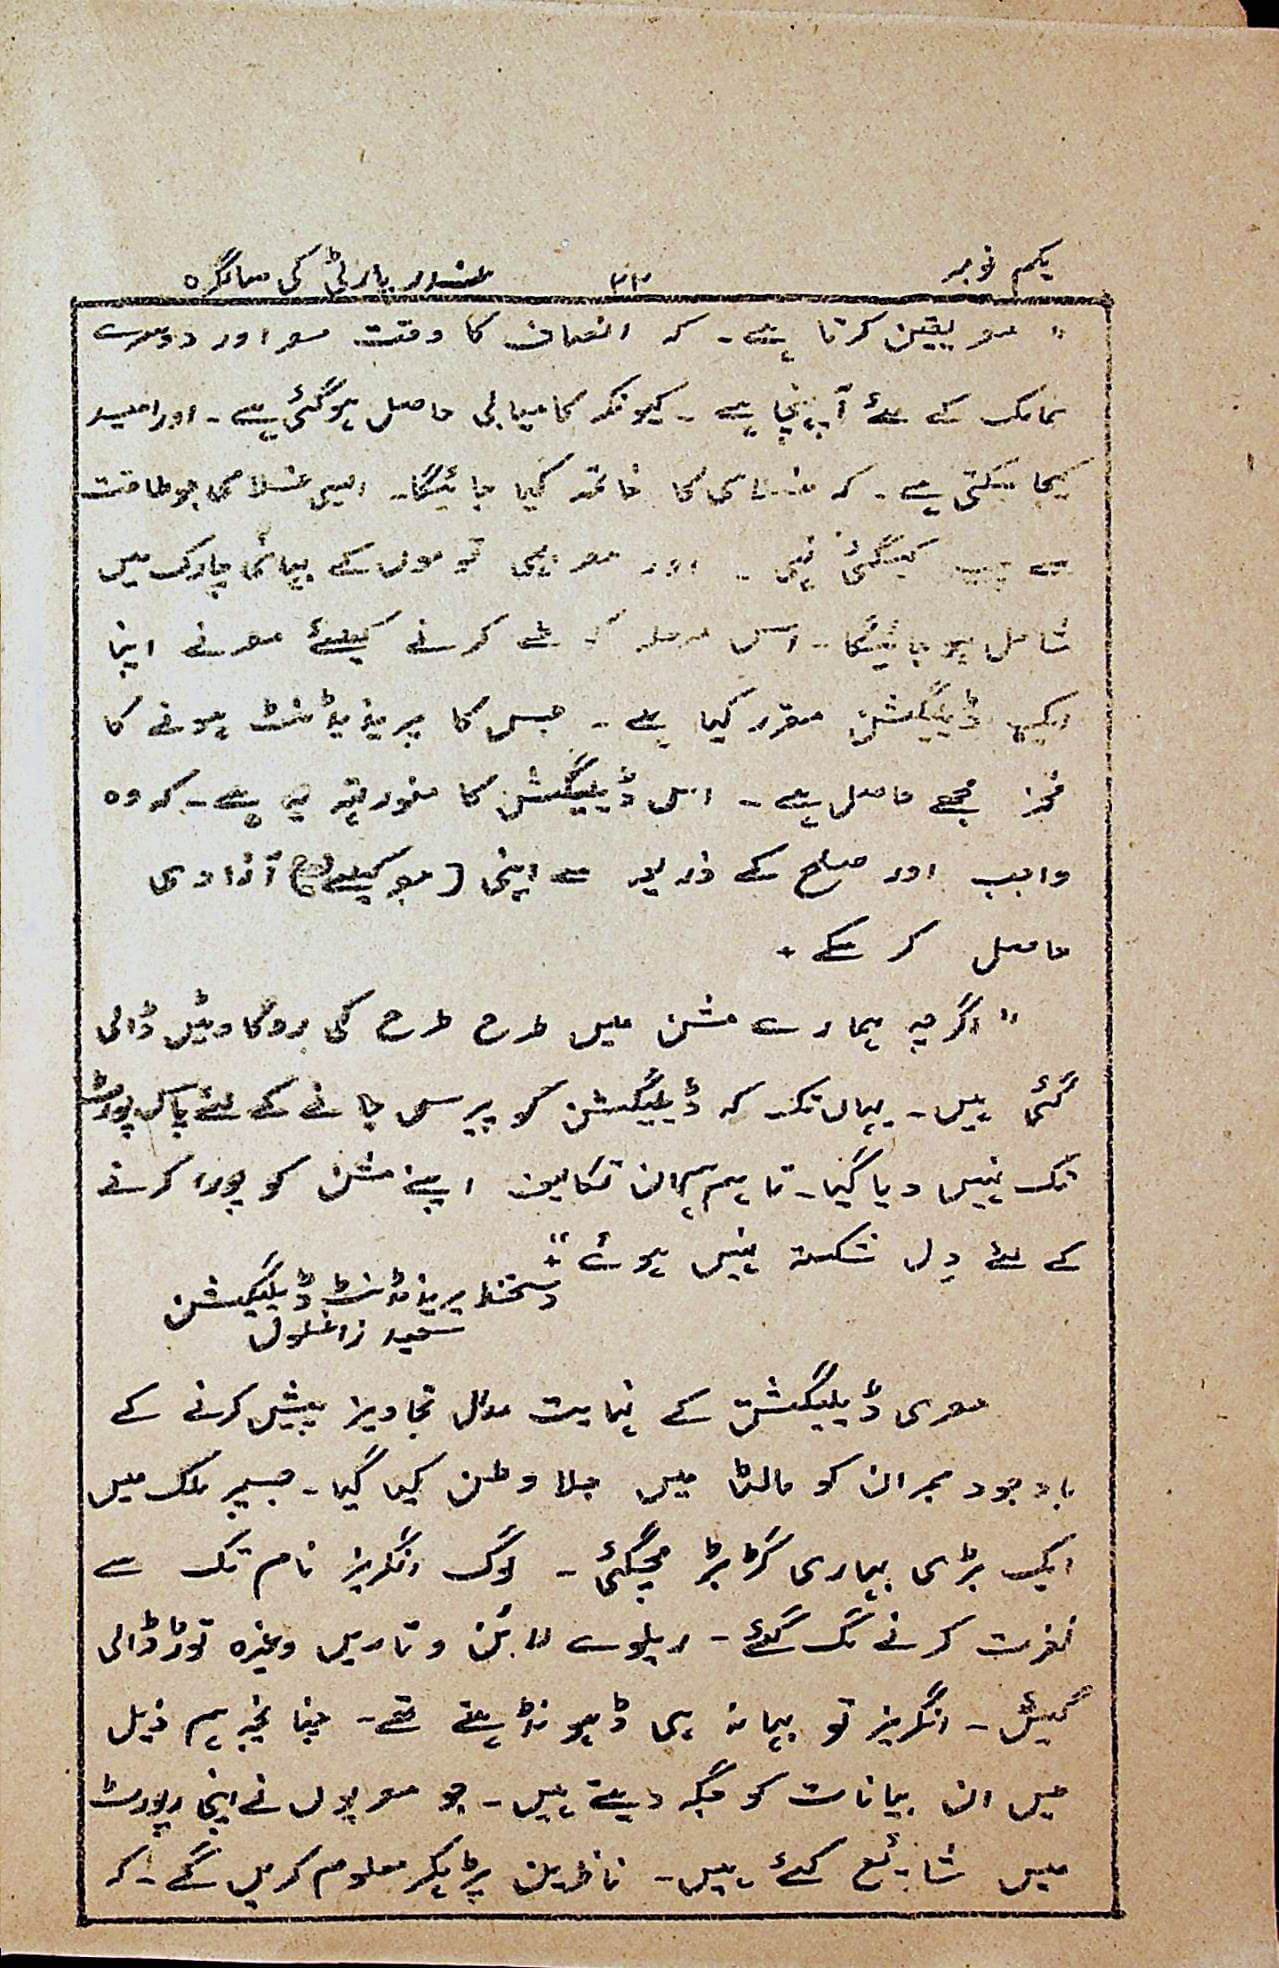 یکم نومبر ۲۳ غدر پارٹی کی سالگرہ
" مصر یقین کرتا ہے۔ کہ انصاف کا وقت مصر اور دوسرے
ممالک کے لئے آپہنچا ہے۔ کیونکہ کامیابی حاصل ہوگئی ہے۔ اور امید
کیجا سکتی ہے۔ کہ غلامی کا خاتمہ کیا جائیگا۔ ایسی غلامی جو طاقت
سے کیگئی تھی۔ اور مصر بھی قوموں کے میں
شامل ہو جائیگا۔ اس مرحلہ کو طے کرنے کیلئے مصر نے اپنا
ایک ڈیلیگیشن مقرر کیا ہے۔ جس کا پریذیڈنٹ ہونے کا
فخر مجھے حاصل ہے۔ اس ڈیلیگیشن کا یہ ہے۔ کہ وہ
واجب اور صلح کے ذریعہ سے اپنی (مصر کیلئے) آزادی
حاصل کر سکے +
" اگرچہ ہمارے مشن میں طرح طرح کی روکاوٹیں ڈالی
گئی ہیں۔ یہاں تک کہ ڈیلیگیشن کو پیرس جانے کے لئے پاس پورٹ
تک نہیں دیا گیا۔ تاہم ہم ان تکالیف اپنے مشن کو پورا کرنے
کے لئے دِل شکستہ نہیں ہوئے " +
دستخط پریذیڈنٹ ڈیلیگیشن
سعید زاغلول
مصری ڈیلیگیشن کے نہایت مدلل تجاویز پیش کرنے کے
باوجود ممبران کو مالٹا میں جلا وطن کیا گیا۔ جسپر ملک میں
ایک بڑی بھاری گڑبڑ مچگئی۔ لوگ انگریز نام تک سے
نفرت کرنے لگ گئے۔ ریلوے لائن و تاریں وغیرہ توڑ ڈالی
گیئں۔ انگریز تو بہانہ ہی ڈھونڈہتے تھے۔ چنانچہ ہم ذیل
میں ان بیانات کو جگہ دیتے ہیں۔ جو مصریوں نے اپنی رپورٹ
میں شایٔع کئے ہیں۔ ناظرین پڑہکر معلوم کریں گے۔ کہ